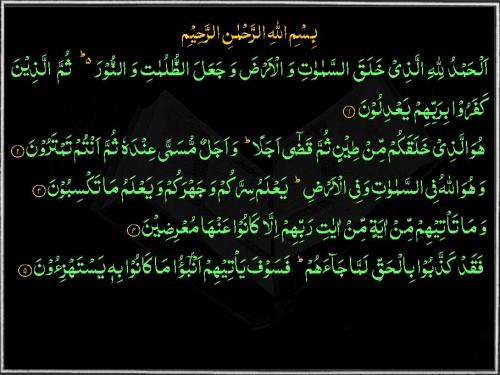 بِسْمِ اللهِ الرَّحْمٰنِ الرَّحِيْمِ
اَلْحَمْدُ لِلّٰهِ الَّذِيْ خَلَقَ السَّمٰوٰتِ وَ الْاَرْضَ وَ جَعَلَ الظُّلُمٰتِ وَ النُّوْرَ ۥؕ ثُمَّ الَّذِيْنَ
كَفَرُوْا بِرَبِّهِمْ يَعْدِلُوْنَ ۝۱
هُوَ الَّذِيْ خَلَقَكُمْ مِّنْ طِيْنٍ ثُمَّ قَضٰۤى اَجَلًا ؕ وَ اَجَلٌ مُّسَمًّى عِنْدَهٗ ثُمَّ اَنْتُمْ تَمْتَرُوْنَ ۝۲
وَ هُوَ اللهُ فِي السَّمٰوٰتِ وَ فِي الْاَرْضِ ؕ يَعْلَمُ سِرَّكُمْ وَ جَهْرَكُمْ وَ يَعْلَمُ مَا تَكْسِبُوْنَ ۝۳
وَ مَا تَاْتِيْهِمْ مِّنْ اٰيَةٍ مِّنْ اٰيٰتِ رَبِّهِمْ اِلَّا كَانُوْا عَنْهَا مُعْرِضِيْنَ ۝۴
فَقَدْ كَذَّبُوْا بِالْحَقِّ لَمَّا جَآءَهُمْ ؕ فَسَوْفَ يَاْتِيْهِمْ اَنْۢبٰٓؤُا مَا كَانُوْا بِهٖ يَسْتَهْزِءُوْنَ ۝۵